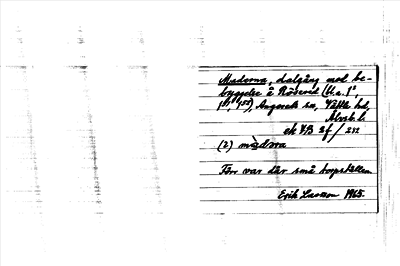 Maderna, dalgång med be-
byggelse å Rösered (U.a. 1⁸,
Angereds sn, Vättle hd,
Älvsb. l.
ek VB 3f / 232
(2) màdɷra
Förr var där små torpställen
Erik Larsson 1965.